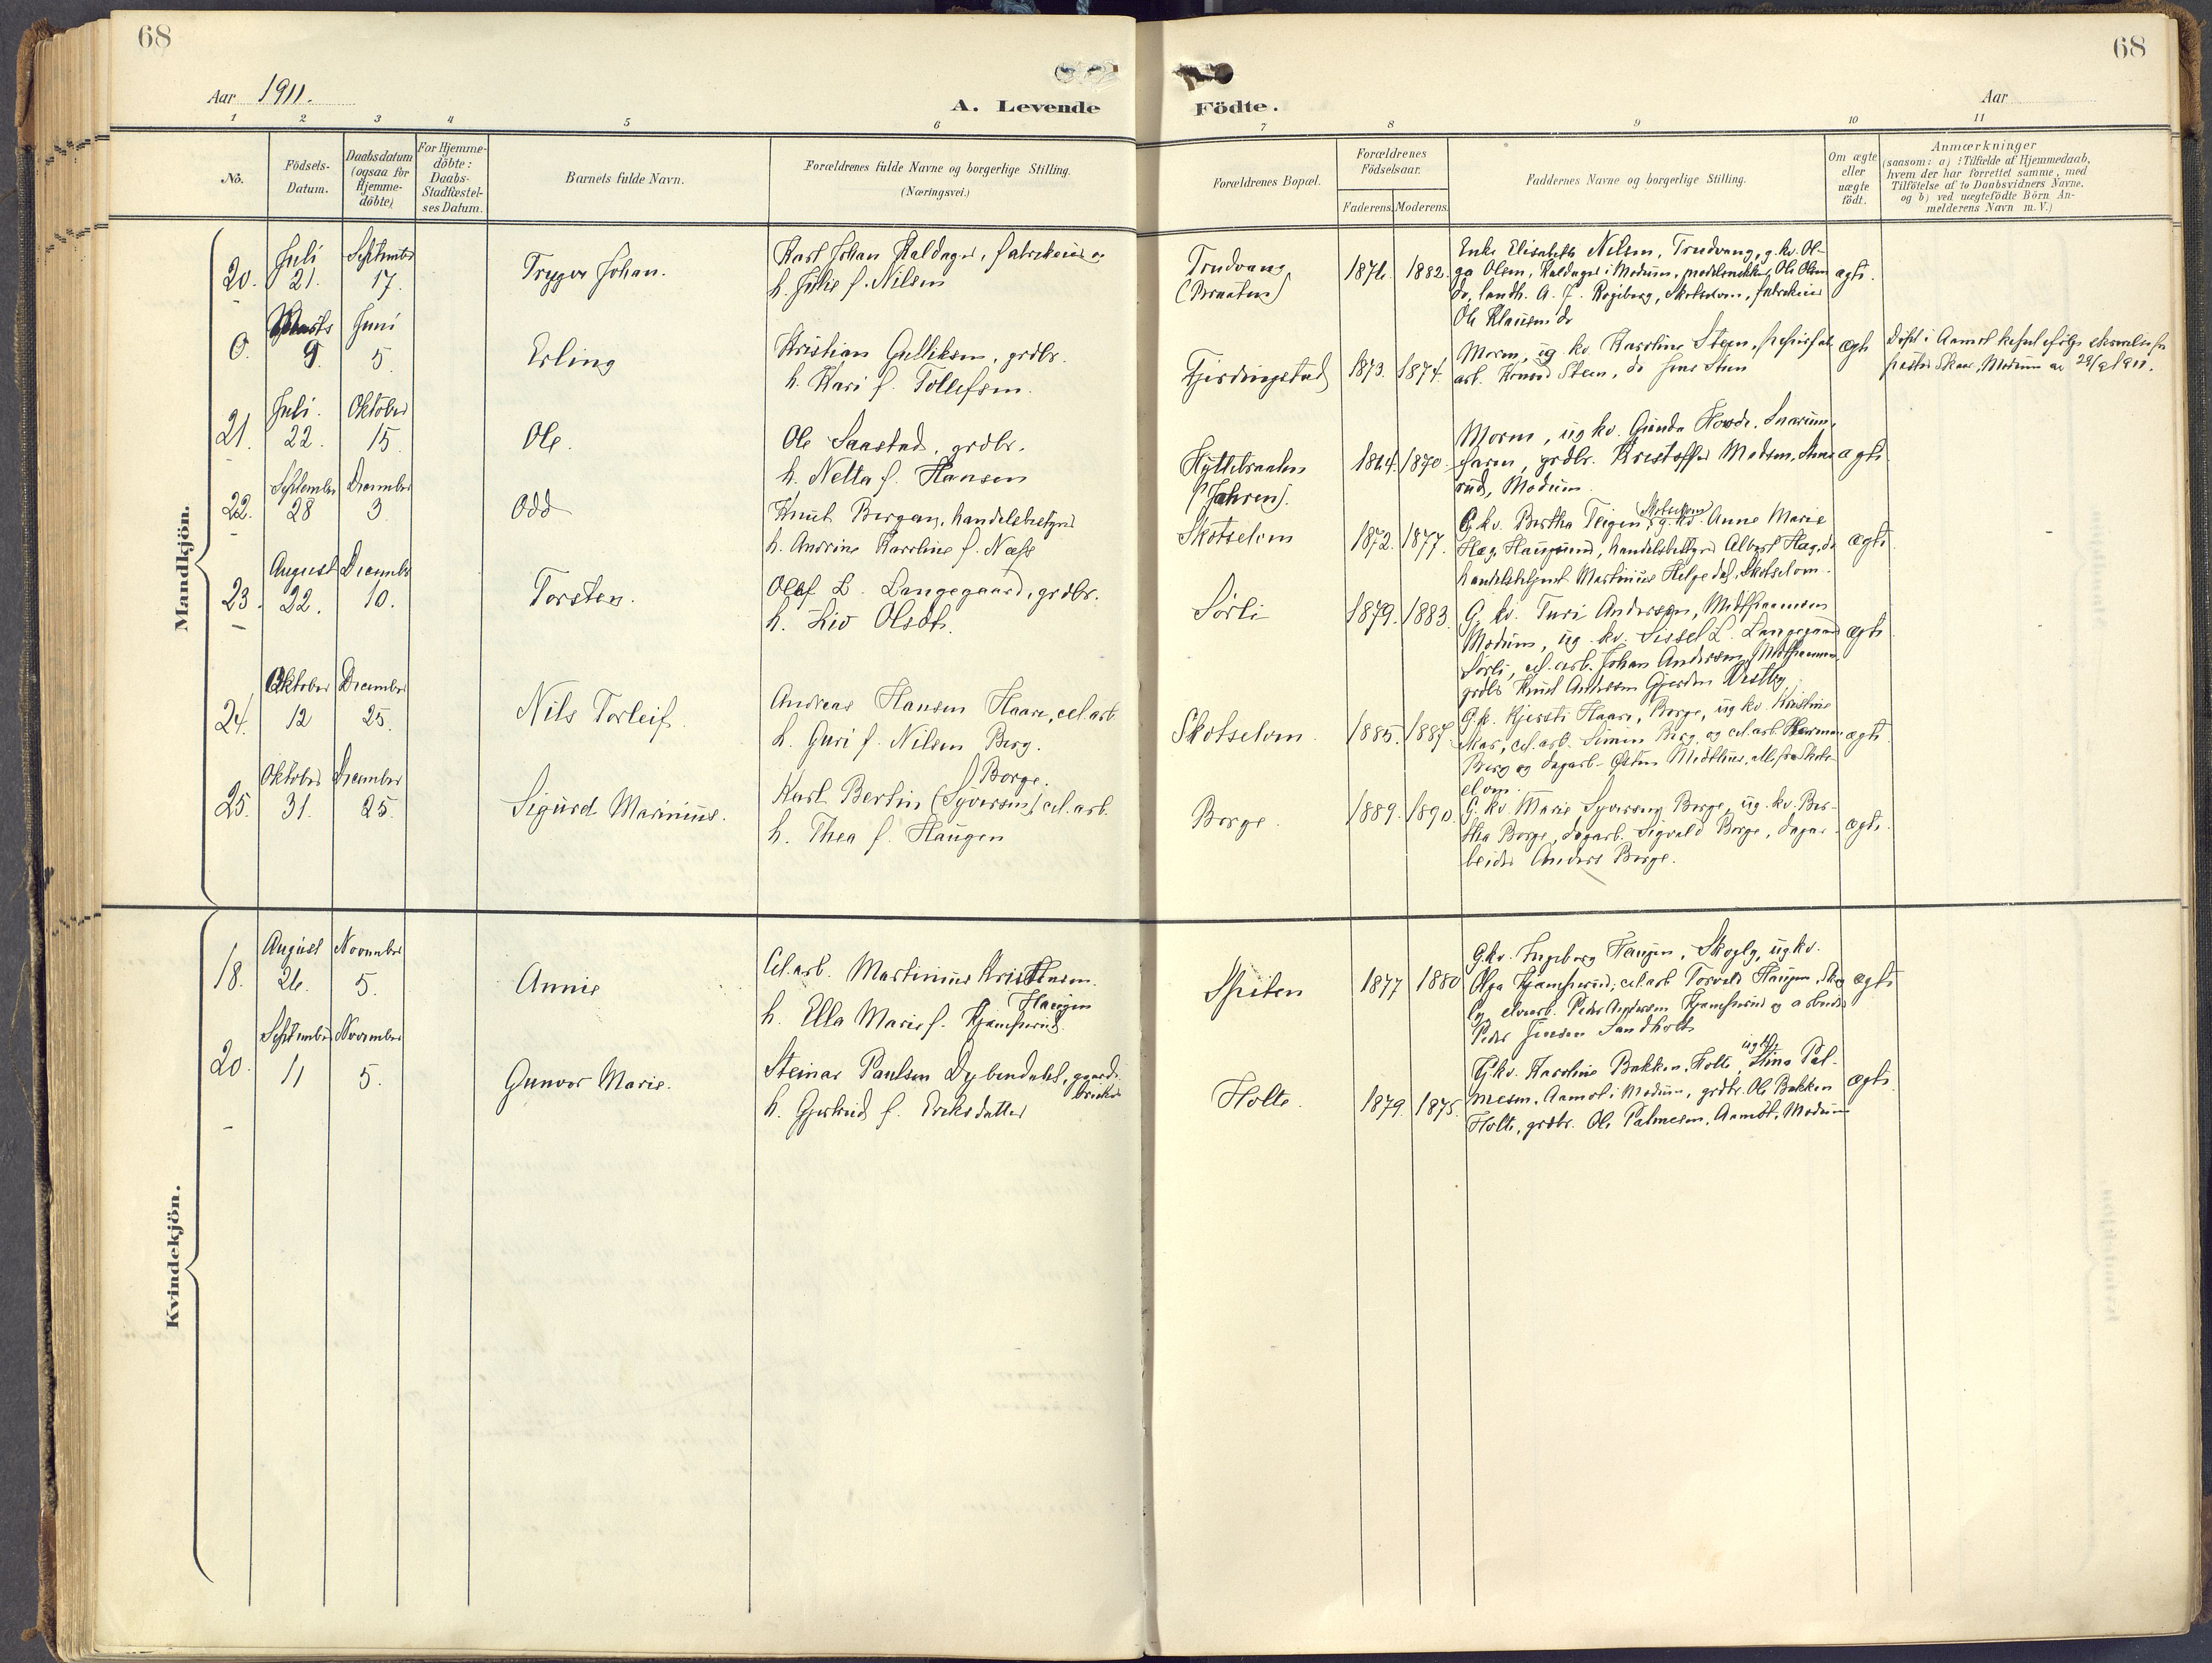 68
68
Aar 1911.
A. Levende
Födte.
Aar
1
2
3
4
5
6
7
8
9
10
11
No.
Födsels-
Datum.
Daabsdatum
(ogsaa for
Hjemme-
döbte)
For Hjemme-
döbte:
Daabs-
Stadfæstel-
ses Datum.
Barnets fulde Navn.
Forældrenes fulde Navne og borgerlige Stilling.
(Næringsvei.)
Forældrenes Bopæl.
Forældrenes
Födselsaar.
Faderens.
Moderens.
Faddernes Navne og borgerlige Stilling.
Om ægte
eller
uægte
födt.
Anmærkninger
(saasom: a) i Tilfælde af Hjemmedaab,
hvem der har forrettet samme, med
Tilföielse af to Daabsvidners Navne,
og b) ved uægtefödte Börn An-
melderens Navn m. V.)
Mandkjön.
20.
Juli
21.
September
17.
Trygve Johan.
Karl Johan Kaldager,
h. Julie f. Nilsen
Trudvang
(Braaten)
1876. 1882.
Enke Elisabeth Nilsen, Trudvang, g.kv. Ol-
ga Olsen, Kaldager i Modum, Ole Olsen
do, landh. A. J. Rogeberg, Skotselven,
Ole Klausen do
ægte.
0.
Marts
9
Juni
5
Erling
Kristian Gulliksen, grdbr.
h. Kari f. Tollefsen.
Fjerdingstad
1873. 1874.
Moren, ug. kv. Karoline Steen,
arb. Steen, do Jens Steen
ægte
Döpt i Aamot
Modum 29/9 1911.
21.
Juli.
22.
Oktober
15
Ole.
Ole Saastad, grdbr.
h. Netta f. Hansen
Hyttebraaten
(Jahren).
1864. 1870.
Moren, ug kv. Gunda Snarum,
grdbr. Kristoffer Madsen,
rud, Modum.
ægte
22.
September
28
December
3
Odd
Knut Bergan, handelsbestyrer
h. Andrine Karoline f. Næss
Skotselven
1872. 1877.
G.kv. Bertha Teigen Skotselven, g.kv. Anne Marie
Hæg, Haugsund, handelsbestyrer Albert Hæg, do
handelsbetjent Martinius Helgedal, Skotselven.
ægte
23.
August
22.
December
10.
Torsten.
Olaf L. Langegaard, grdbr.
h. Liv Olsdt.
Sørli
1879. 1883.
G. kv. Turi Anderssen,
Modum, ug. kv. Sissel L. Langegaard
Sørli, cel. arb. Johan Andersen,
grdbr Knut Andersen Gjerden Vestby
ægte
24.
Oktober
12
December
25.
Nils Torleif.
Andreas Hansen Haare, cel. arb
h. Guri f. Nilsen Berg.
Skotselven.
1885. 1887
G.k. Kjersti Haare, Borge, ug kv. Kristine
cel. arb. Simen Berg, og cel. arb. Herman
Berg og dagarb. alle fra Skots-
elven.
ægte
25.
Oktober
31.
December
25.
Sigurd Marinius.
Borge.
Karl Bertin (Syversen) cel. arb.
h. Thea f. Haugen
Borge.
1889. 1890.
G. kv Marie Syversen, Borge, ug. kv. Ber-
tha Borge, dagarb. Sigvald Borge, dagar-
beider Anders Borge.
ægte.
Kvindekjön.
18.
August
26.
November
5.
Annie
Cel. arb. Martinius Kristensen.
Haugen
h. Ella Marie f. Kjamperud.
Spiten
1877 1880
G.kv. Ingeborg Haugen, Skogly, ug kv.
Olga Kjampesrud; cel. arb Torvald Haugen, Skog
ly, Peder Andersen Kjampesrud og arbeider
Peder Jensen Sandholt
ægte
20.
September
11
November
5.
Gunvor Marie.
Steinar Paulsen Dybendahl, gaard-
bruker
h. Gjertrud f. Eriksdatter
Holte.
1879. 1875.
ug kv.
G.kv. Karoline Bakken, Holte, Stina Pal-
mesen, Aamot i Modum, grdbr. Ole Bakken
Holte, grdbr. Ole Palmesen, Aamot i Modum
ægte.